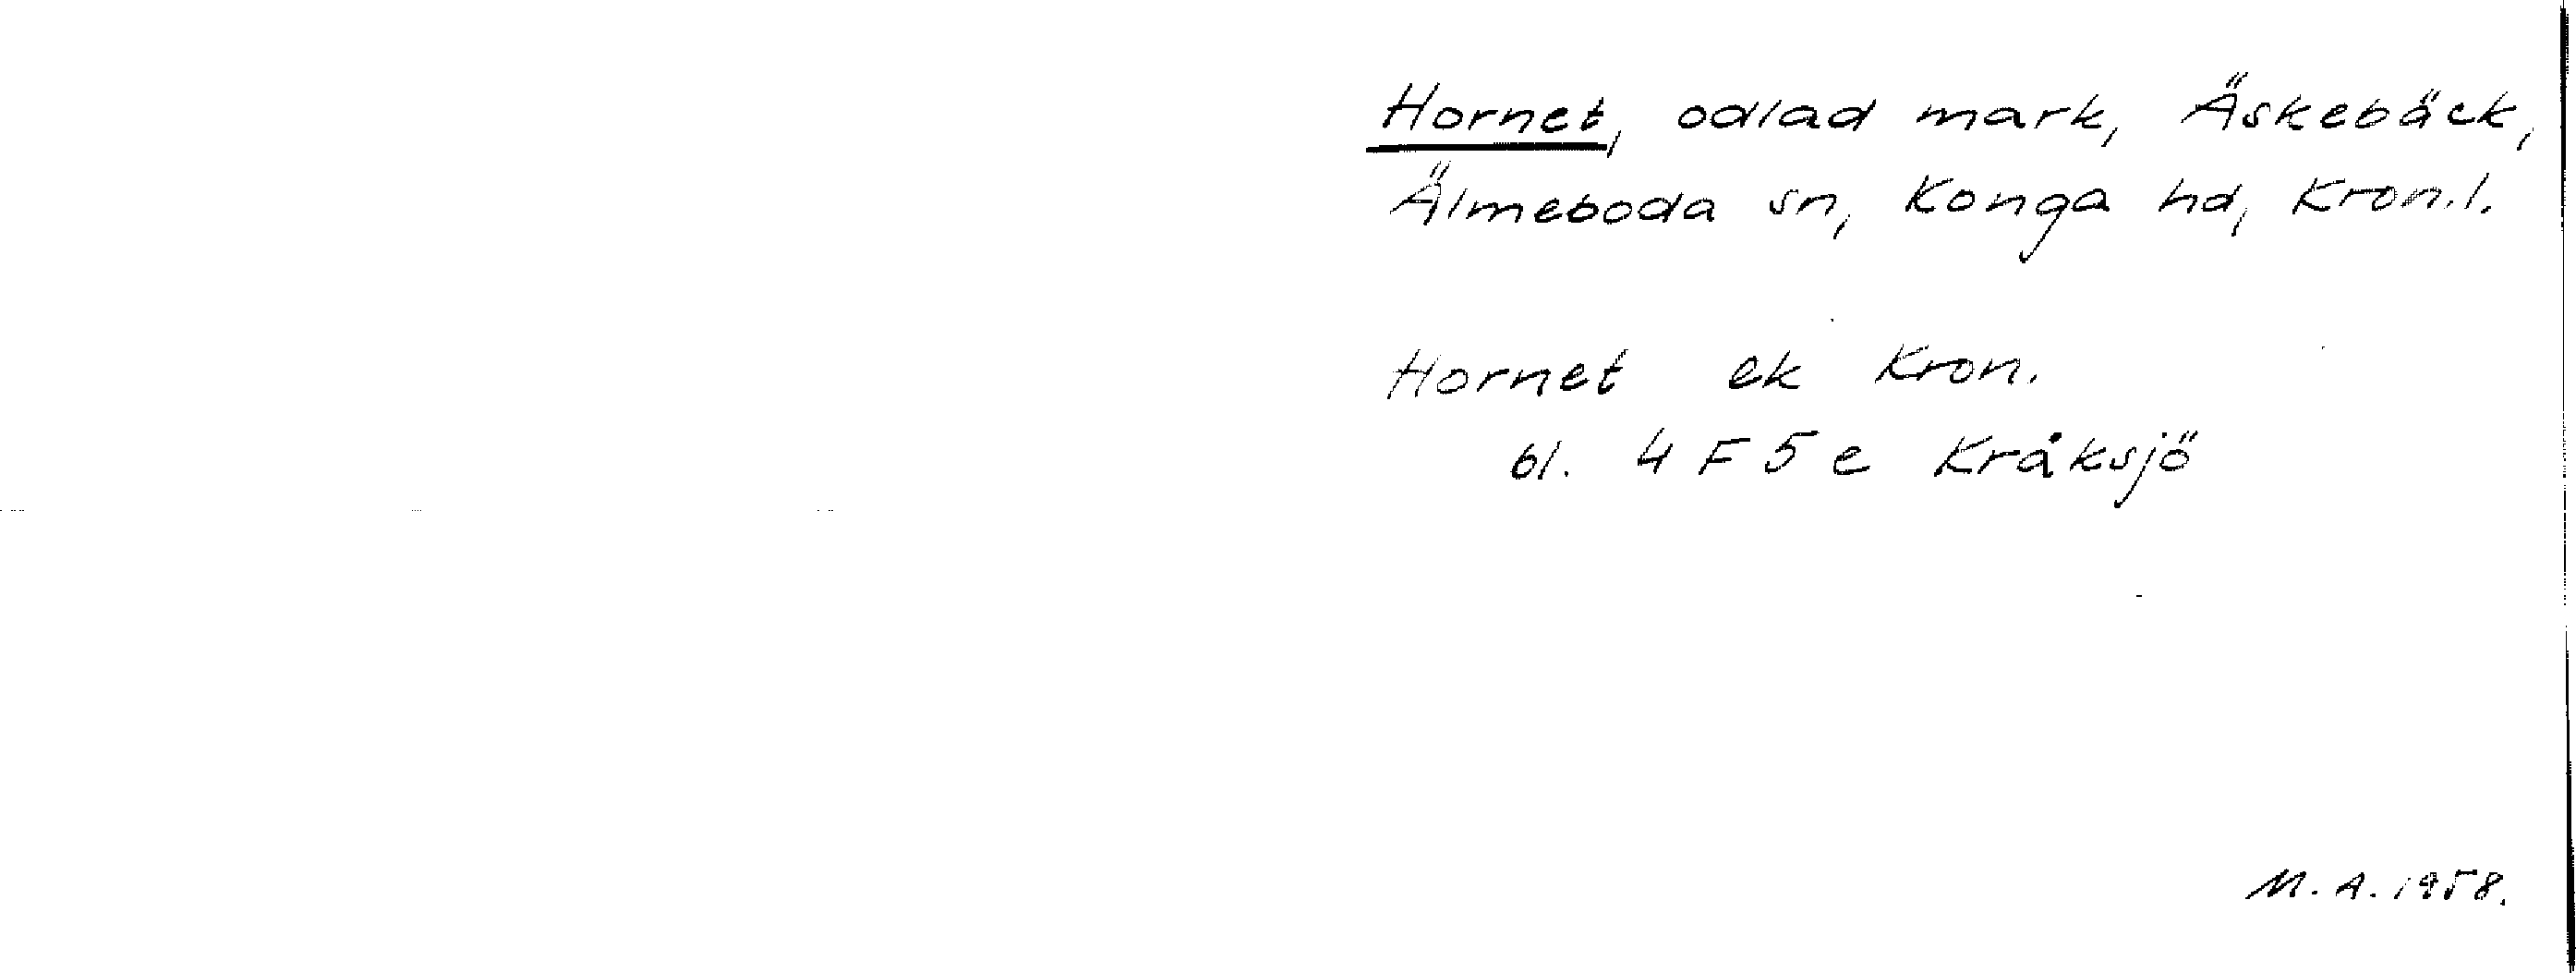 Hornet, odlad mark, Äskebäck,
Älmeboda sn, Konga hd, Kron.l.
Hornet ek Kron.
bl. 4 F 5 e Kråksjö
M. A. 1958.